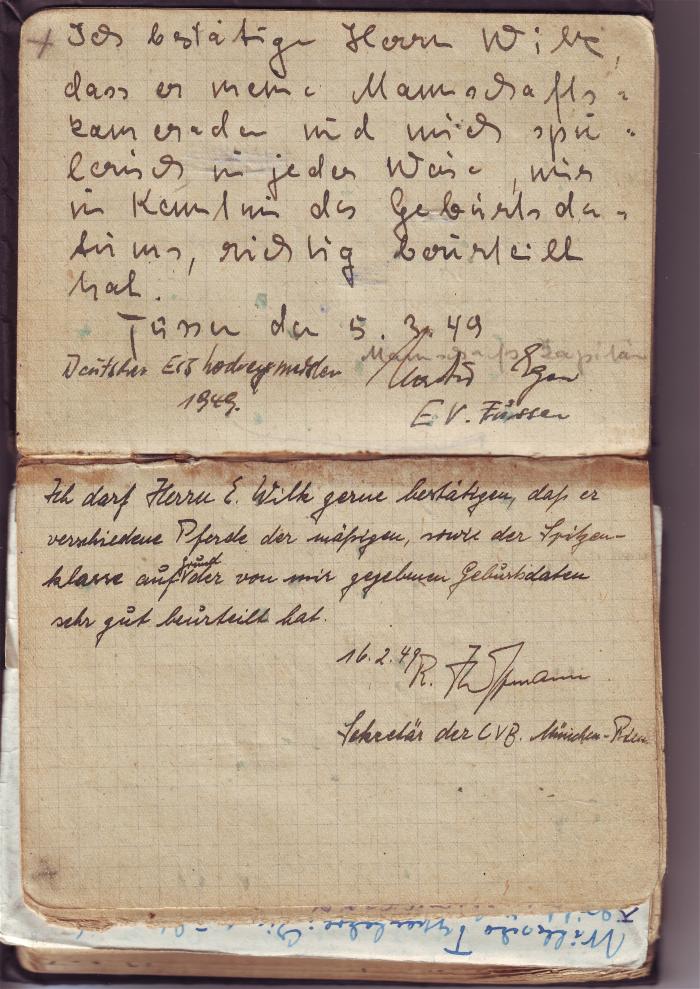 Ich bestätige Herrn Wilk,
dass er meine Mannschafts-
kameraden und mich spie-
lerisch in jeder Weise, nur
in Kenntnis des Geburtsda-
tums, richtig beurteilt
hat.
Füssen den 5. 3. 49
Mannschaftskapitän
Deutscher Eishockeymeister
1949.
Egen
E V. Füssen
Ich darf Herrn E. Wilk gerne bestätigen, daß er
verschiedene Pferde der mäßigen, sowie der Spitzen-
klasse auf grund der von mir gegebenen Geburtsdaten
sehr gut beurteilt hat.
16.2.49 R.
Sekretär der CVB. München-Riem